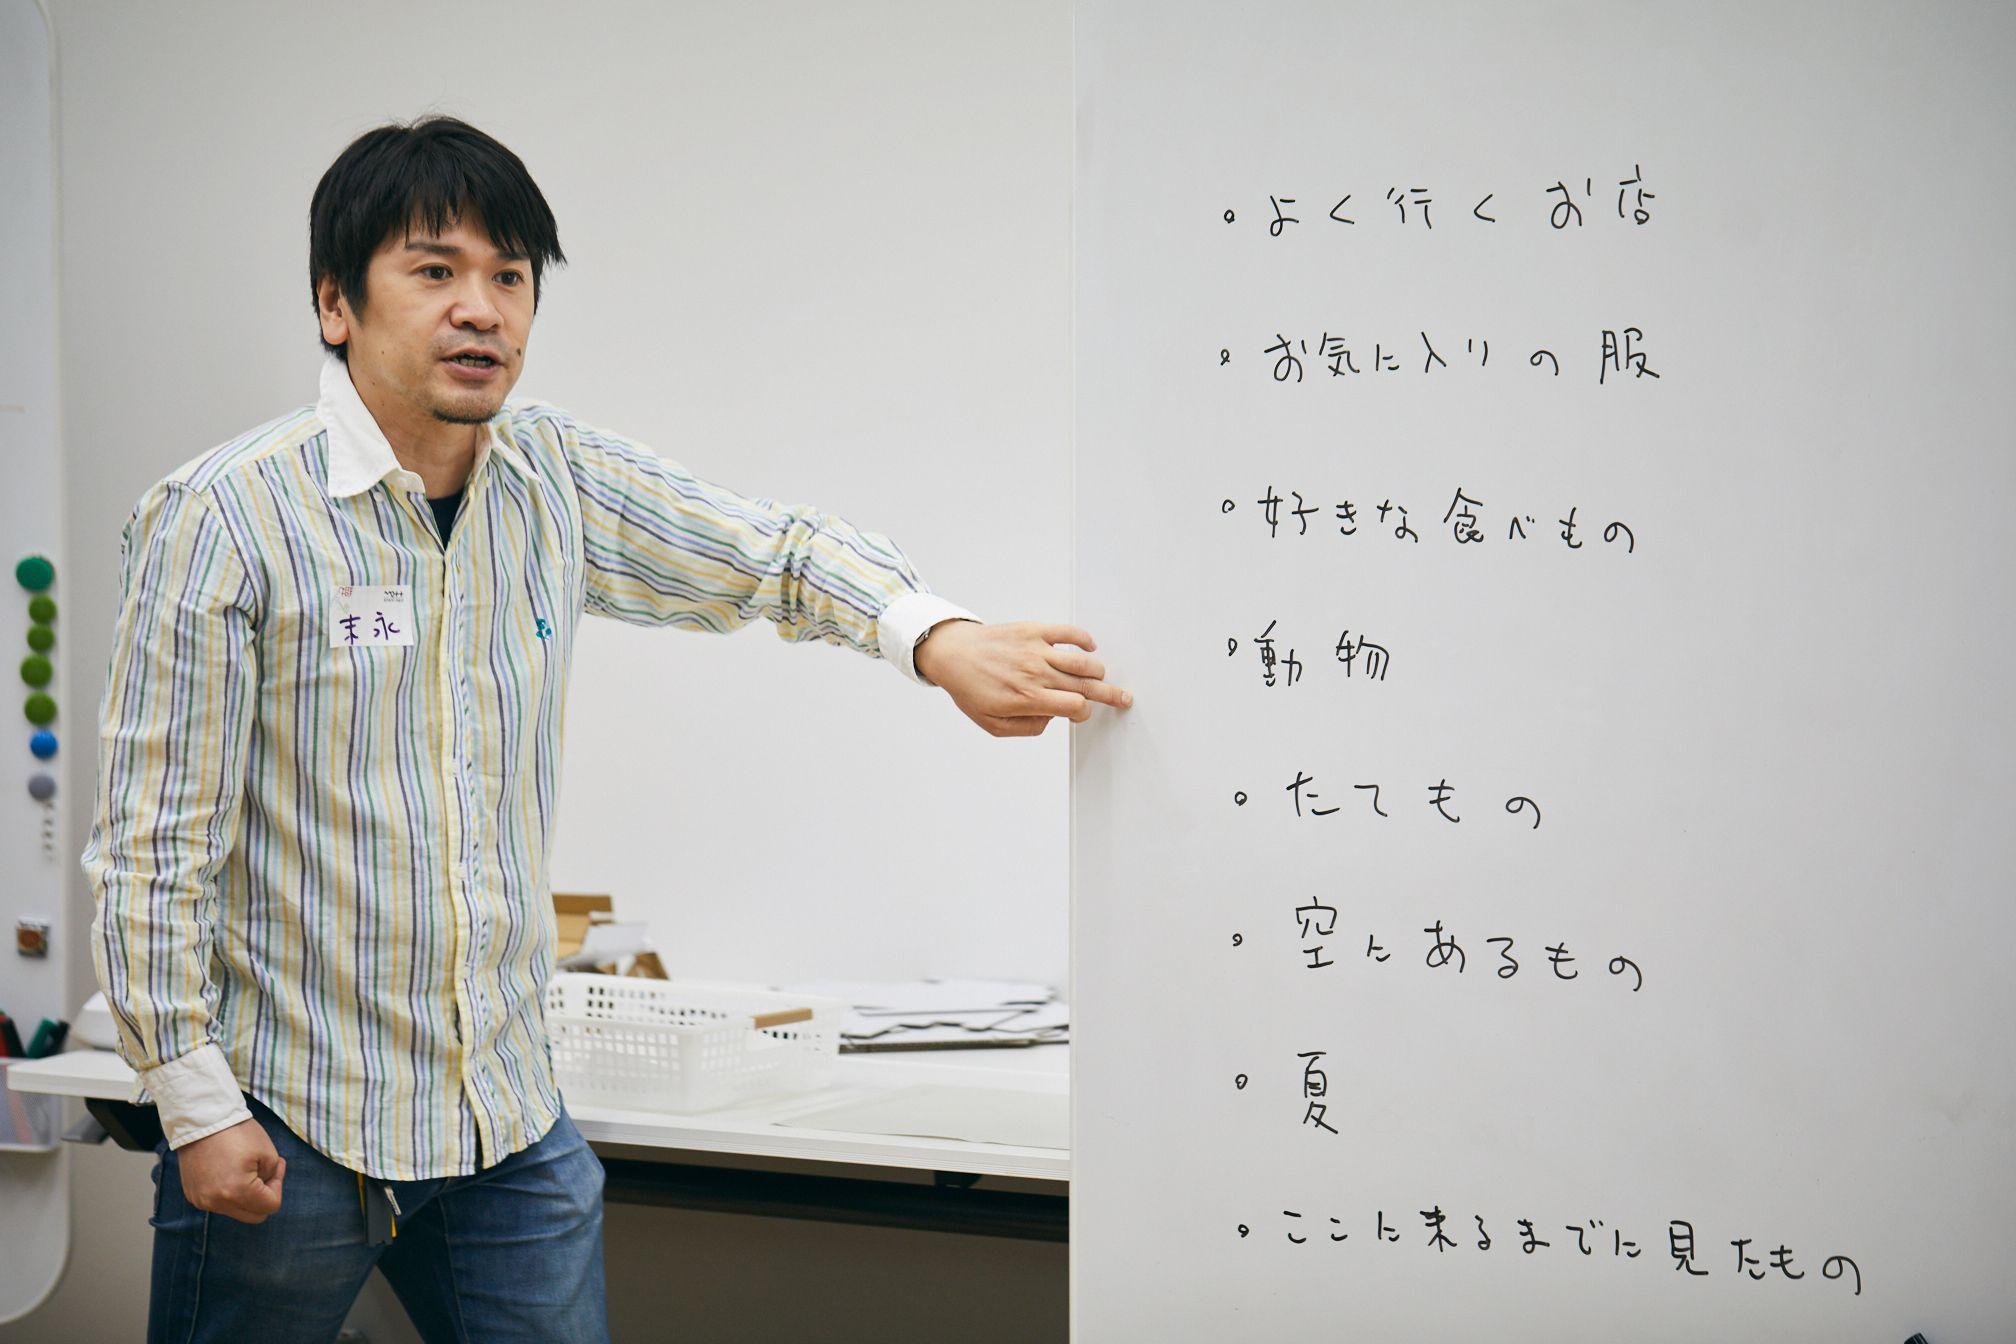 ・よく行くお店
・お気に入りの服
・好きな食べもの
・動物
・たてもの
・空にあるもの
・夏
・ここに来るまでに見たもの
末永